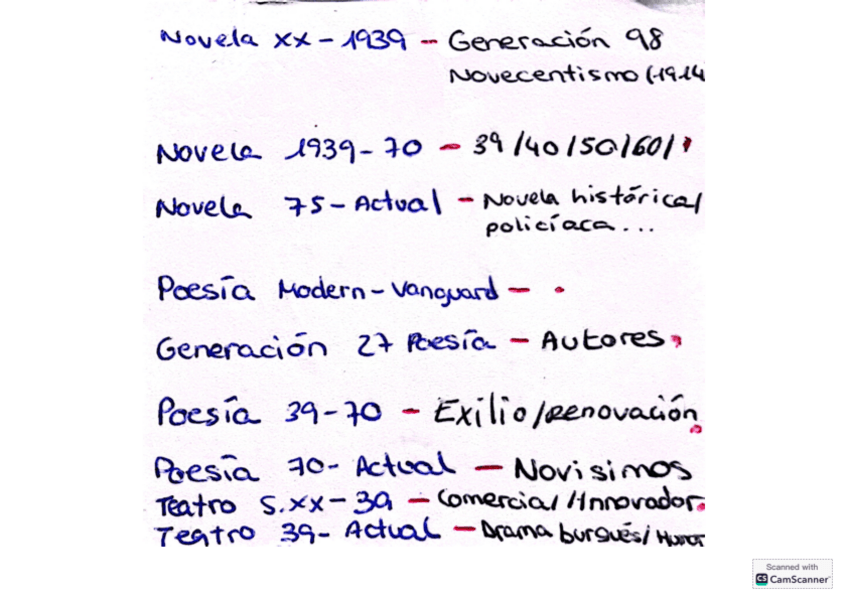 Novela XX - 1939 - Generación 98
Novecentismo (1914
Novela 1939-70 - 39/40/50/60/
Novela 75-Actual - Novela histórica/
policíaca...
Poesía Modern-Vanguard -
Generación 27 Poesía - Autores
Poesía 39-70 - Exilio/renovación
Poesía 70-Actual - Novisimos
Teatro S.XX-39 - Comercial/Innovador
Teatro 39-Actual - Drama burgués/Humor
Scanned with
CS CamScanner